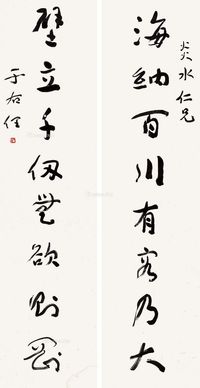 炎水仁兄
海納百川有容乃大
壁立千仞無欲則剛
于右任